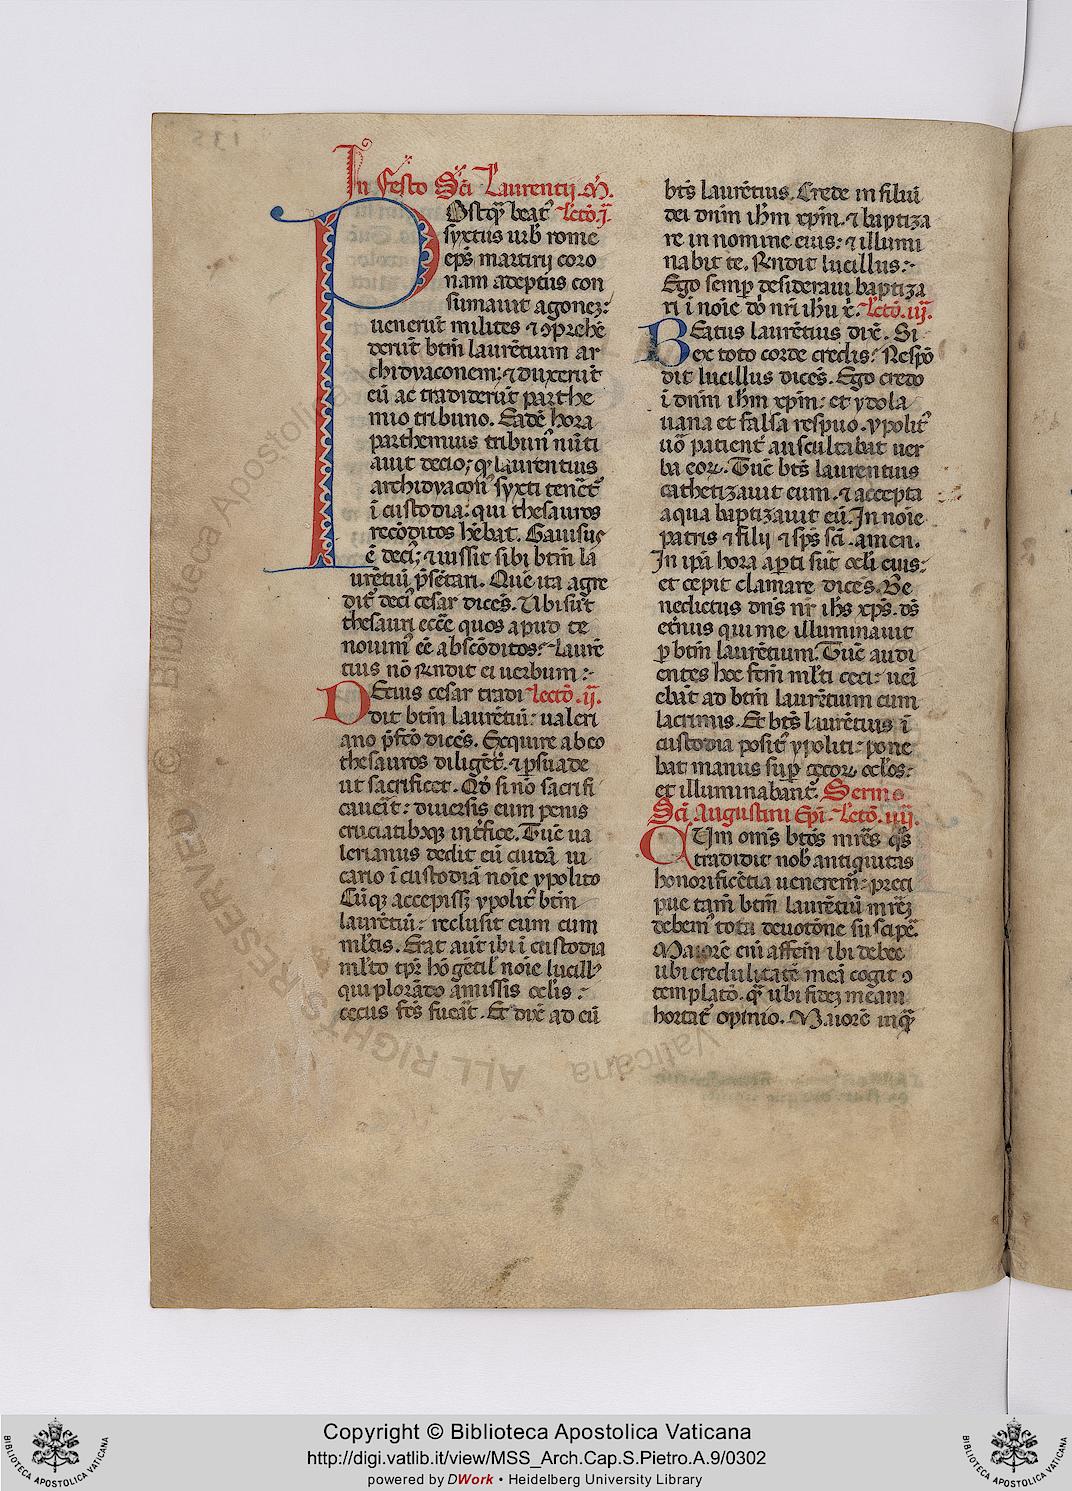 In festo Sc̄i Laurentij. M̄.
POstq̄ȝ beatꝰ Lectō. j̄.
syxtus urb̉ rome
ep̄s martirij coro
nam adeptus con
sumauit agoneȝ:
uenerūt milites ⁊ ꝯprehē
derūt btm̄ laurētium ar
chidyaconem: ⁊ duxerūt
eū ac tradiderūt parthe
mio tribuno. Eadē hora
parthemius tribunꝰ nūti
auit decio; qꝫ laurentius
archidyaconꝰ syxti tenet᷑
ī custodia: qui thesauros
recōditos hēbat. Gauisus
ē decꝰ; ⁊ iussit sibi btm̄ la
urētiū p̄sētari. Quē ita agre
dit᷑ decꝰ cesar dicēs. Ubi sūt
thesauri ecc̄e quos apud te
nouimꝰ eē abscōditos: Laurē
tius nō rn̄dit ei uerbum:
DEcius cesar tradi Lectō. ij̄.
dit btm̄ laurētiū: ualeri
ano p̄fcō dicēs. Exquire ab eo
thesauros diligēt᷑. ⁊ ꝑsuade
ut sacrificet. Qd̓ si nō sacrifi
cauerit: diuersis eum penis
cruciatibꝫqꝫ int̓fice. Tūc ua
lerianus dedit eū cuidā ui
cario ī custodiā noīe ypolito
Cūqꝫ accepisset ypolitꝰ btm̄
laurētiū: reclusit eum cum
ml̄tis. Erat aūt ibi ī custodia
ml̄to tp̄r hō gētil̓ noīe lucillꝰ
qui plorādo amissis ocl̄is:
cecus fc̄s fuerat. Et dixit ad eū
bt̄s laurētius. Crede in filiū
dei dn̄m ih̄m xp̄m. ⁊ baptiza
re in nomine eius: ⁊ illumi
nabit te. Rn̄dit lucillus:
Ego semꝑ desideraui baptiza
ri ī noīe dn̄i nr̄i ih̄u x̄. Lectō. iij̄.
BEatus laurētius dixit. Si
ex toto corde credis: Respō
dit lucillus dicēs. Ego credo
ī dn̄m ih̄m xp̄m: et ydola
uana et falsa respuo. ypolitꝰ
uō patient᷑ auscultabat uer
ba eoꝝ. Tūc bt̄s laurentius
cathetizauit eum. ⁊ accepta
aqua baptizauit eū. In noīe
patris ⁊ filij ⁊ sp̄s sc̄i. amen.
In ip̄a hora aꝑti sūt ocl̄i eius:
et cepit clamare dicēs. Be
nedictus dn̄s nr̄ ih̄s xp̄s. ds̄
et̓nus qui me illuminauit
ꝑ btm̄ laurētium. Tūc audi
entes hoc fc̄m ml̄ti ceci: ueni
ebāt ad btm̄ laurētium cum
lacrimis. Et bt̄s laurētius ī
custodia positꝰ ypoliti: pone
bat manus suꝑ cecoꝝ ocl̄os:
et illuminabant᷑. Sermo
Sc̄i Augustini Ep̄i. Lectō. iiij̄.
CUm om̄s btōs mr̄es qͦs
tradidit nob̉ antiquitas
honorificētia ueneremꝰ: preci
pue tam̄ btm̄ laurētiū mr̄eȝ
debemꝰ tota deuotōne suscipe᷑.
Maiorē eni affcm̄ ibi debeo
ubi credulitatē meā cogit ꝯ
templatō. qͣȝ ubi fidez meam
hortat᷑ opinio. Maiorē inqͣȝ
Copyright © Biblioteca Apostolica Vaticana
http://digi.vatlib.it/view/MSS_Arch.Cap.S.Pietro.A.9/0302
powered by DWork • Heidelberg University Library